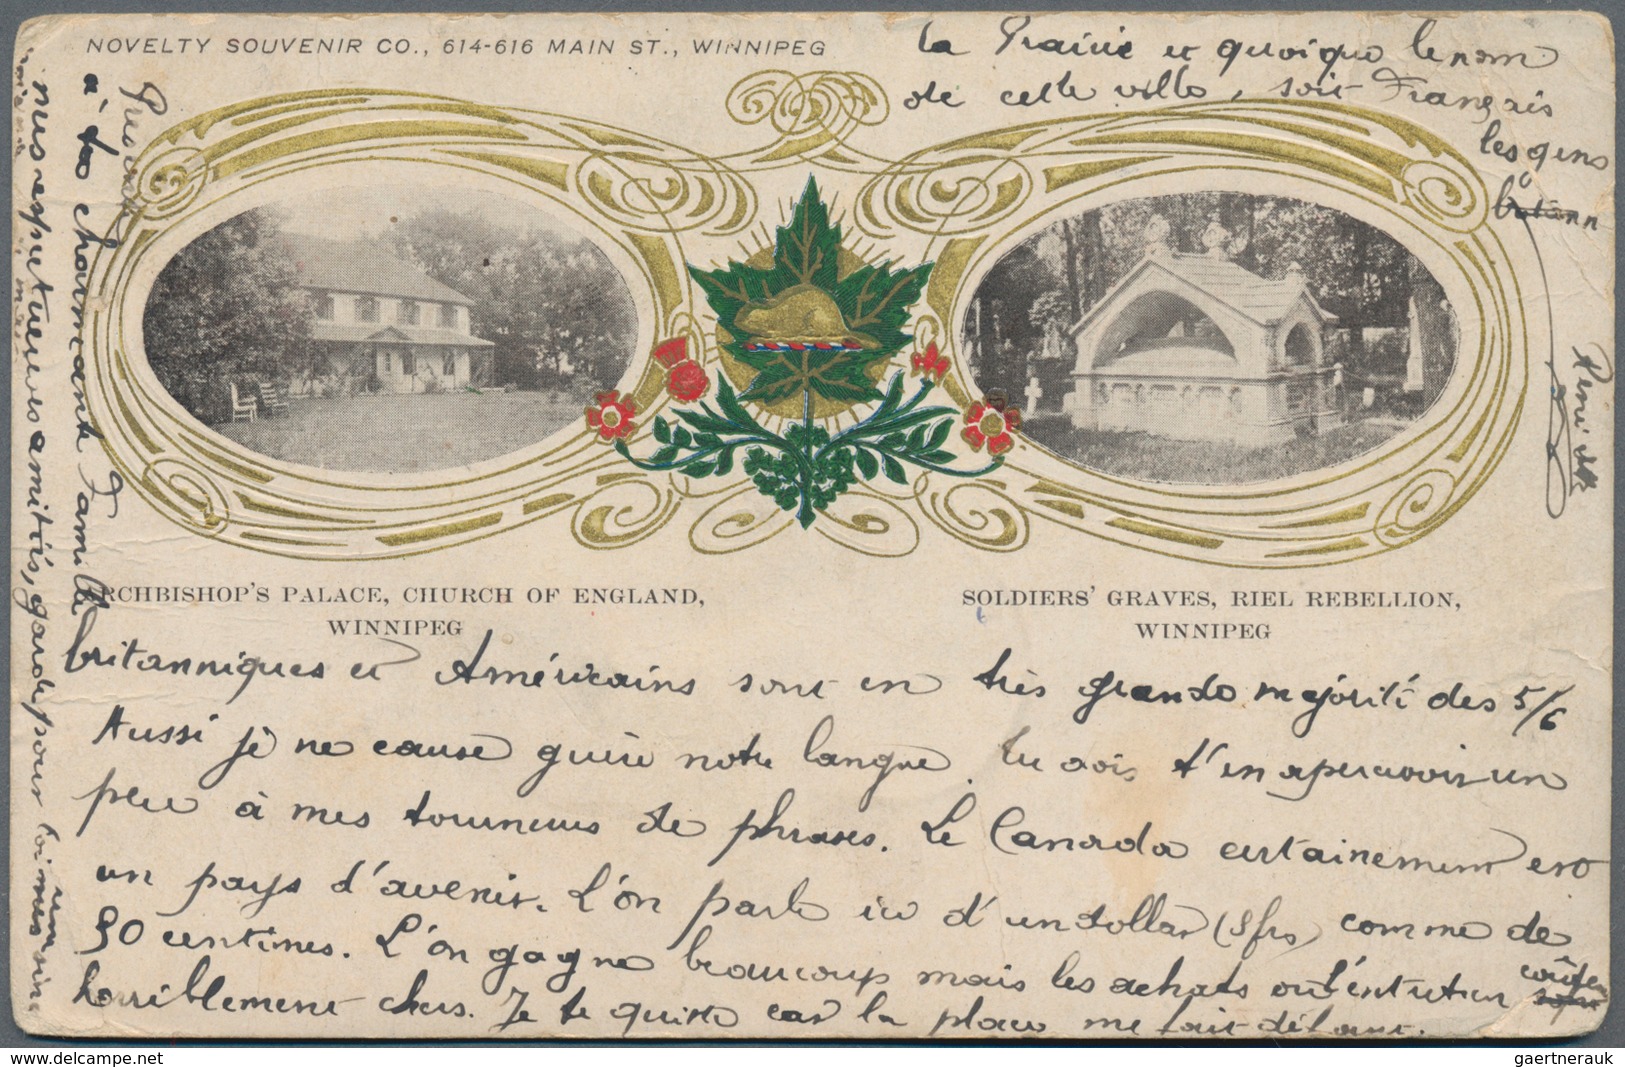 NOVELTY SOUVENIR CO., 614-616 MAIN ST., WINNIPEG
la Prairie et quoique le nom
de cette ville, soit Français
les gens
britann
ARCHBISHOP'S PALACE, CHURCH OF ENGLAND,
WINNIPEG
SOLDIERS' GRAVES, RIEL REBELLION,
WINNIPEG
britanniques et Américains sont en très grande majorité des 5/6
Aussi je ne cause guère notre langue. Tu dois t'en apercevoir un
peu à mes tournures de phrases. Le Canada certainement est
un pays d'avenir. L'on parle ici d'un dollar (5frs) comme de
50 centimes. L'on gagne beaucoup mais les achats et l'entretien coûtent
horriblement chers. Je te quitte car la place me fait défaut.
Présente
à ta charmante Famille
mes respectueuses amitiés, garde pour toi mes
René
gaertnerauk